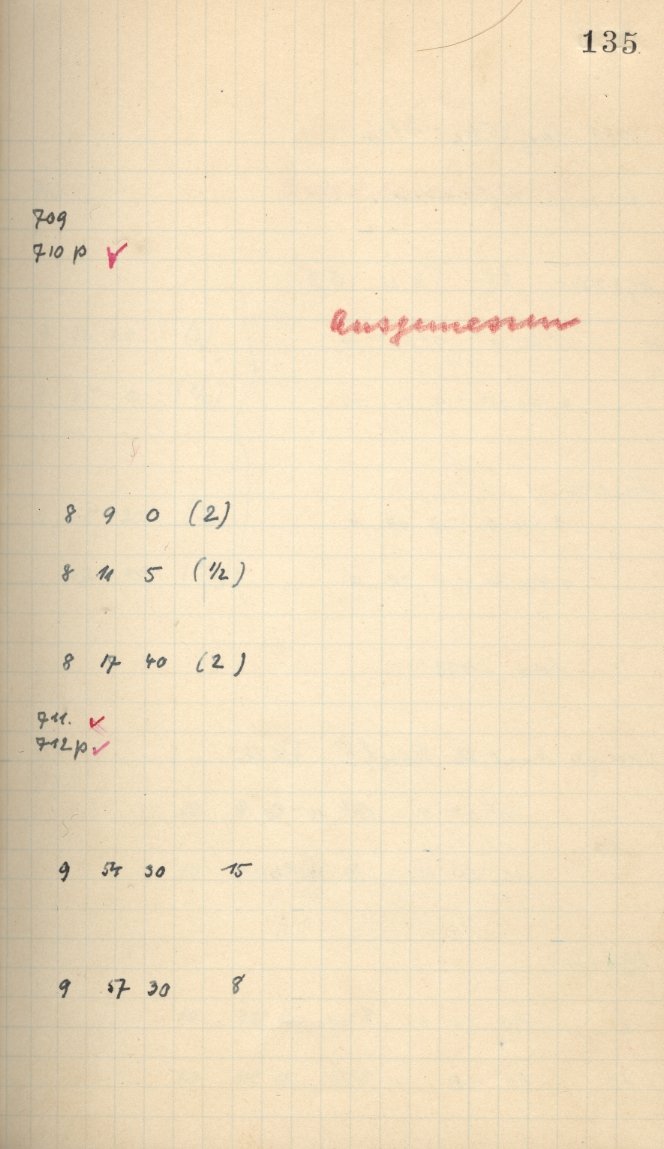 135
709
710 p ✓
Ausgemessen
8 9 0 (2)
8 11 5 (1/2)
8 17 40 (2)
711. ✓
712 p ✓
9 54 30 15
9 57 30 8